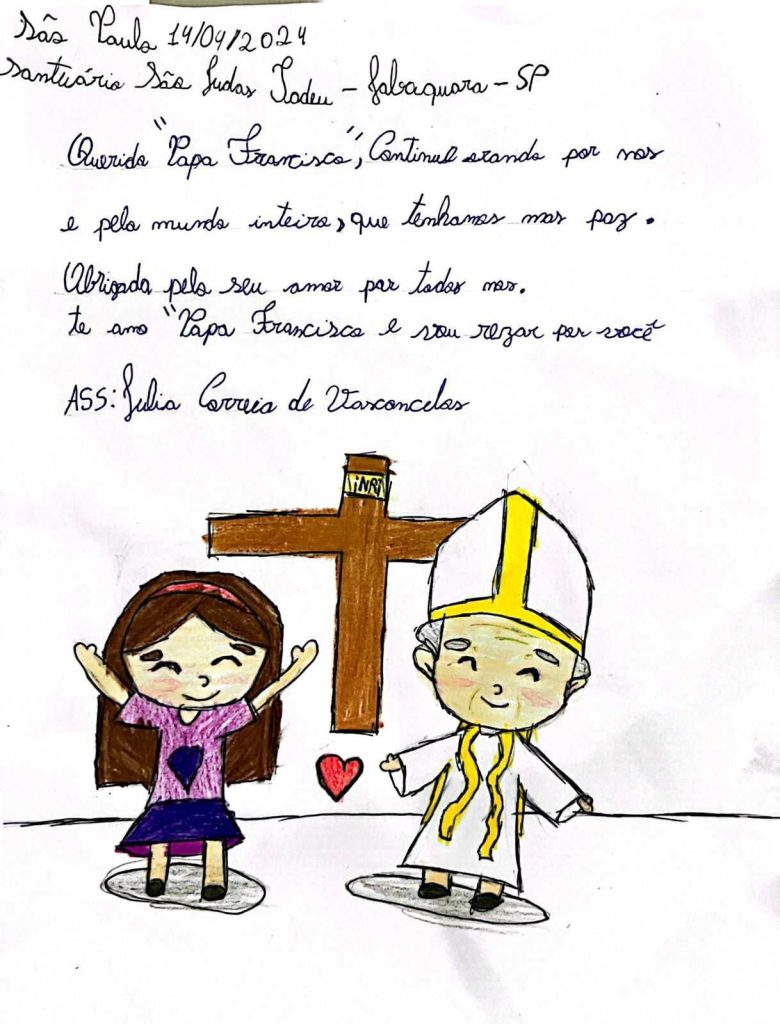 São Paulo 14/04/2024
Santuário São Judas Tadeu - Jabaquara - SP
Querido "Papa Francisco", Continue orando por nos
e pelo mundo inteiro, que tenhamos mas paz.
Obrigada pelo seu amor por todos nos.
te amo "Papa Francisco e vou rezar por você
ASS: Julia Correia de Vasconcelos
iNRi